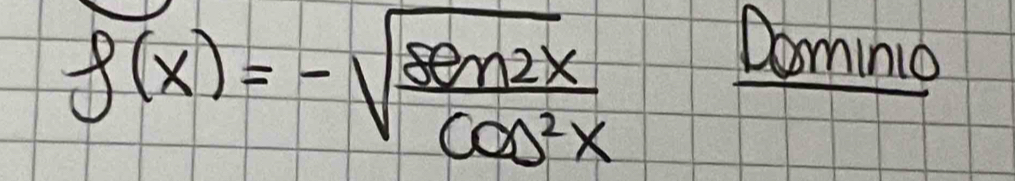 f(x) = -√(sen2x / cos²x) Dominio